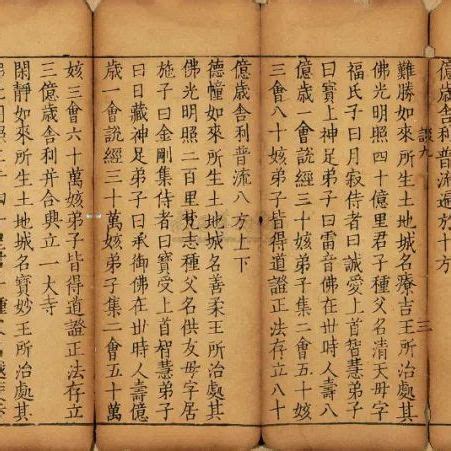 億歲舍利普流遍於十方
談九 三
難勝如來所生土地城名療吉王所治處其
佛光明照四十億里君子種父名清天母字
福氏子曰月寂侍者曰誠愛上首智慧弟子
曰寶上神足弟子曰雷音佛在丗時人壽
億歲一會說經三十姟弟子集二會五十姟
三會八十姟弟子皆得道證正法存立八十
億歲舍利普流八方上下
德幢如來所生土地城名善柔王所治處其
佛光明照二百里梵志種父名供友母字居
施子曰金剛集侍者曰寶受上首智慧弟子
曰日藏神足弟子曰承御佛在丗時人壽億
歲一會說經三十萬姟弟子集二會五十萬
姟三會六十萬姟弟子皆得道證正法存立
三億歲舍利并合典立一大寺
閑靜如來所生土地城名寶妙王所治處其